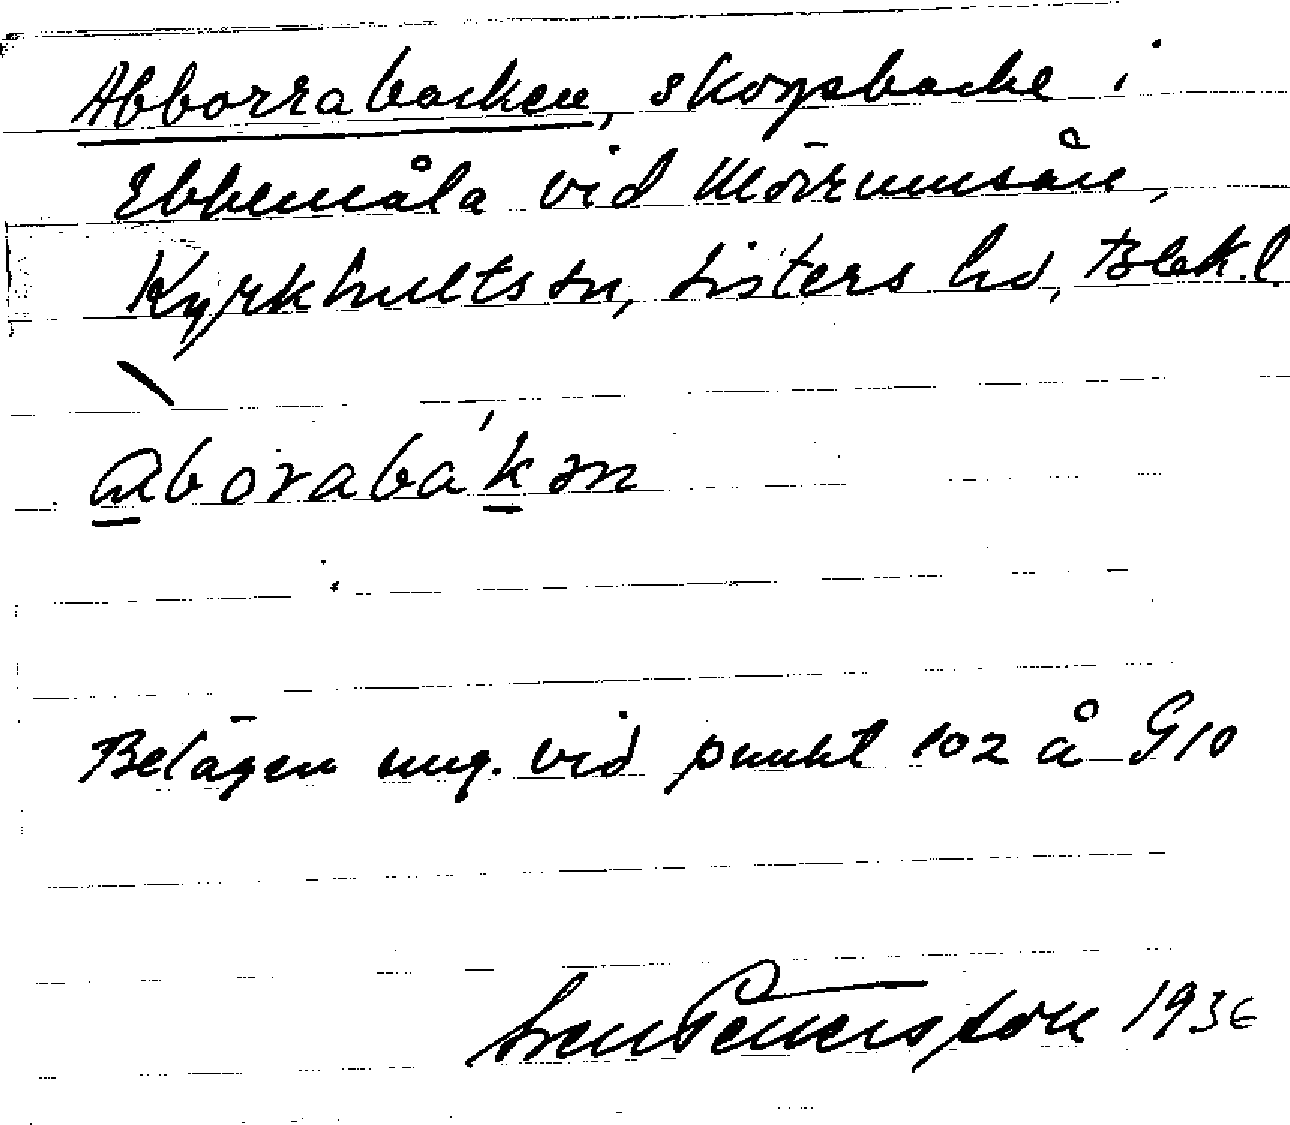 Abborrabacken, skogsbacke i
Ebbemåla vid Mörrumsån,
Kyrkhults sn, Listers hd, Blek.l.
aborabákən
Belägen ung. vid punkt 102 å G10
Sven Pettersson 1936